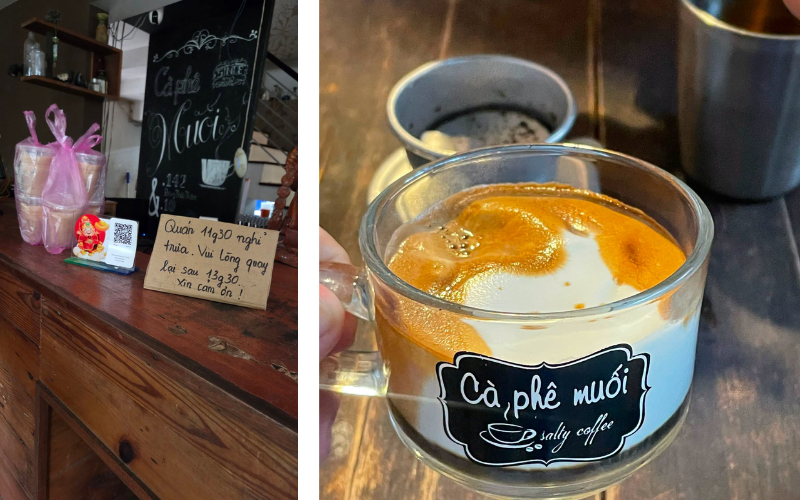 Cà phê
SINCE
Muối
&
142
10
Quán 11g30 nghỉ
trưa. Vui lòng quay
lại sau 13g30.
Xin cảm ơn!
Cà phê muối
salty coffee